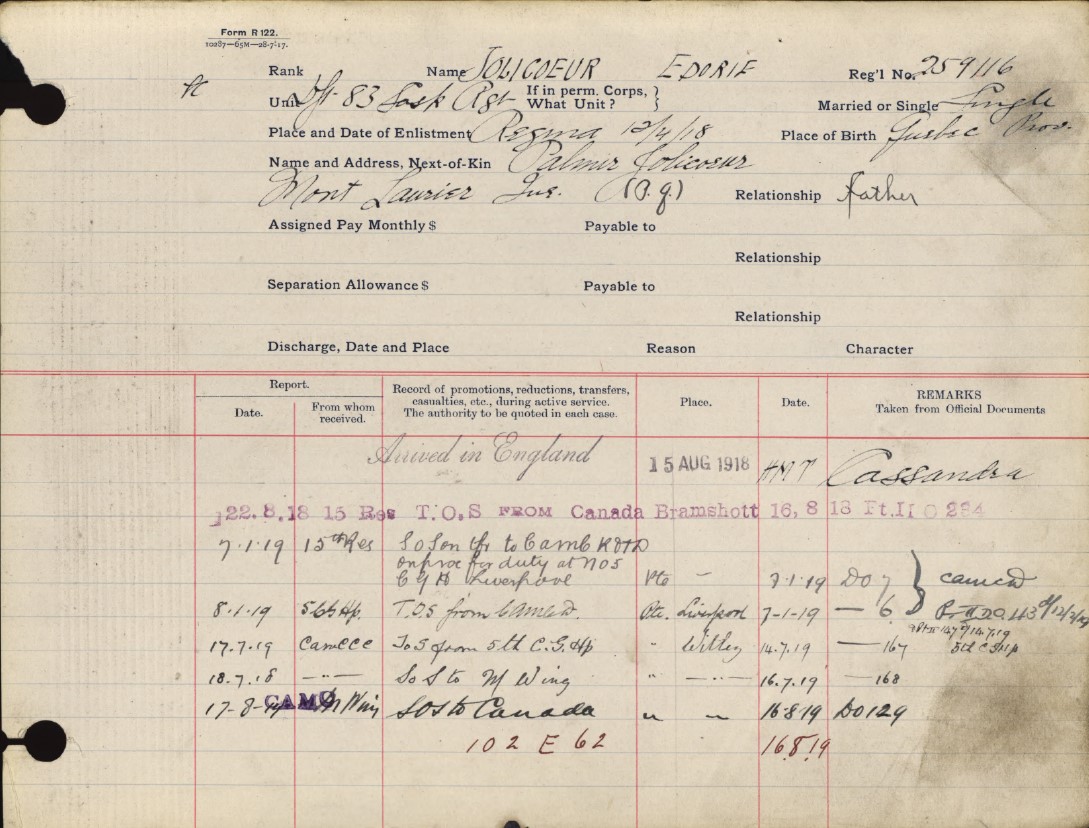 Form R 122.
10287—65M—28-7-17.
Rank Name JOLICOEUR EDORIE Reg'l No. 259116
Unit Dft 83 Sask Rgt If in perm. Corps, What Unit? } Married or Single Single
Place and Date of Enlistment Regina 12/4/18 Place of Birth Quebec Prov.
Name and Address, Next-of-Kin Palmir Jolicoeur
Mont Laurier Que. (P.Q.) Relationship father
Assigned Pay Monthly $ Payable to
Relationship
Separation Allowance $ Payable to
Relationship
Discharge, Date and Place Reason Character
Report.
Date. From whom received. Record of promotions, reductions, transfers, casualties, etc., during active service. The authority to be quoted in each case. Place. Date. REMARKS Taken from Official Documents
Arrived in England 15 AUG 1918 HMT Cassandra
22.8.18 15 Res T.O.S FROM Canada Bramshott 16,8 18 Pt.II O 234
7.1.19 15th Res SoS on tfr to CAMC
on proc for duty at No 5
CGH Liverpool Pte - 7.1.19 DO 7
8.1.19 5CGHp. T.O.S from CAMC Pte. Liverpool 7-1-19 — 6
17.7.19 Camccc ToS from 5th C.G.Hp " Witley 14.7.19 — 167 5th C G Hp
18.7.18 —"— SoS to M Wing " —"— 16.7.19 — 168
17-8-19 CAMC M Wing SOS to Canada " " 16·8·19 DO129
102 E 62 16.8.19